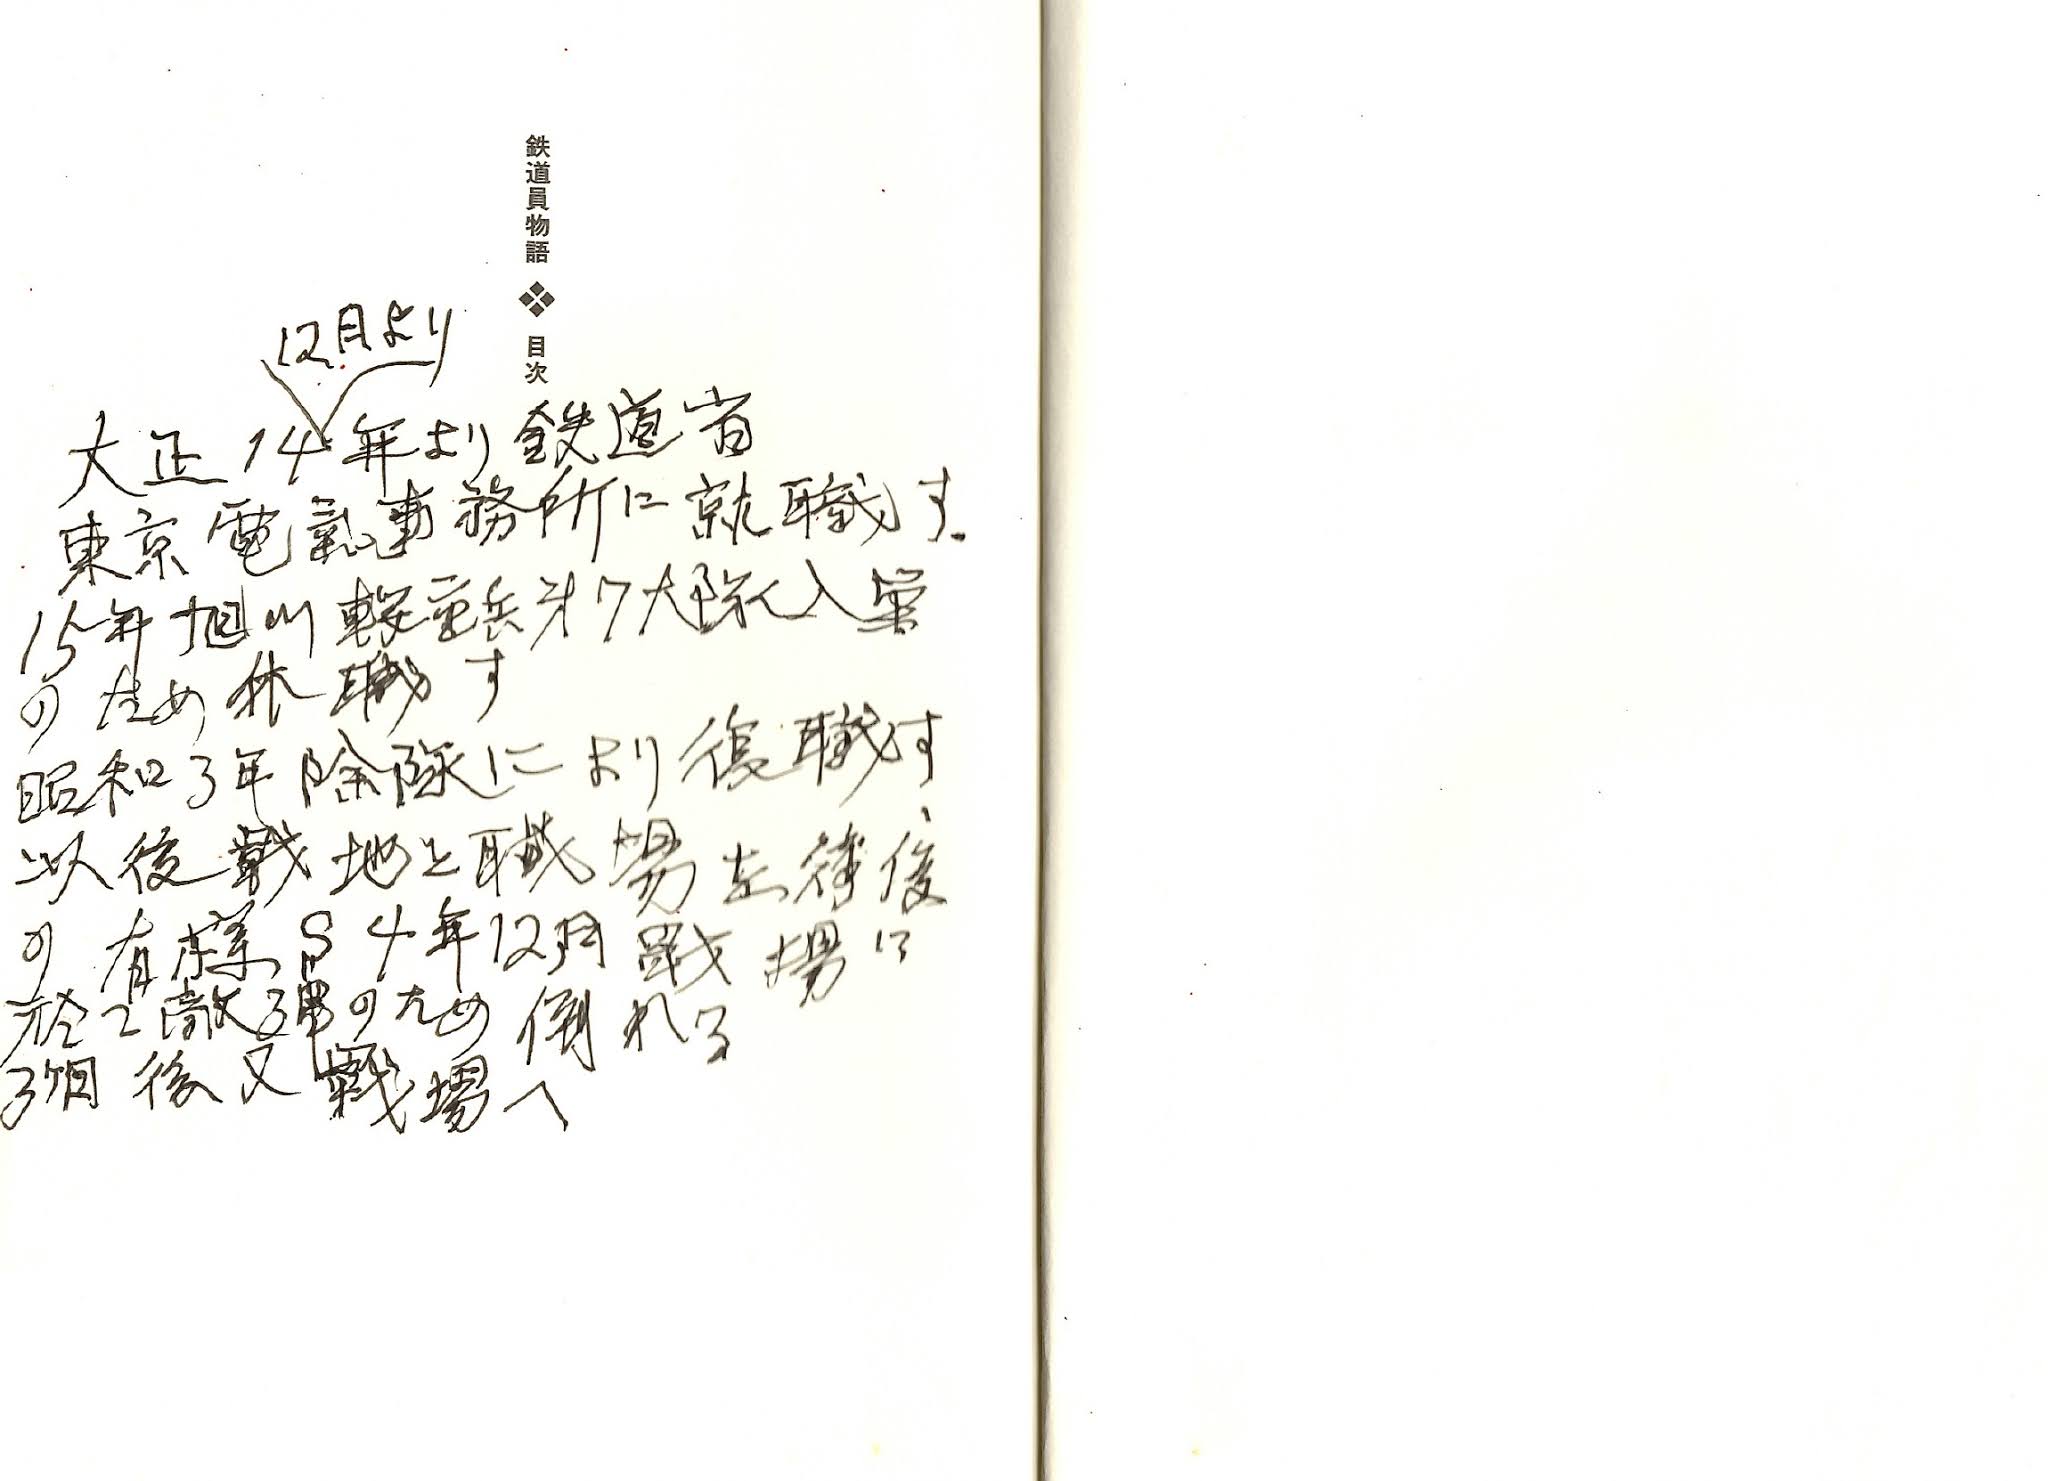 鉄道員物語 ❖ 目次
12月より
大正14年より鉄道省
東京電氣事務所に就職す.
15年旭川輜重兵才7大隊へ入営
のため休職す
昭和3年除隊により復職す、
以後戦地と職場を往復
の有様 S4年12月戦場に
於て敵弾のため倒れる
3ケ月後又戦場へ